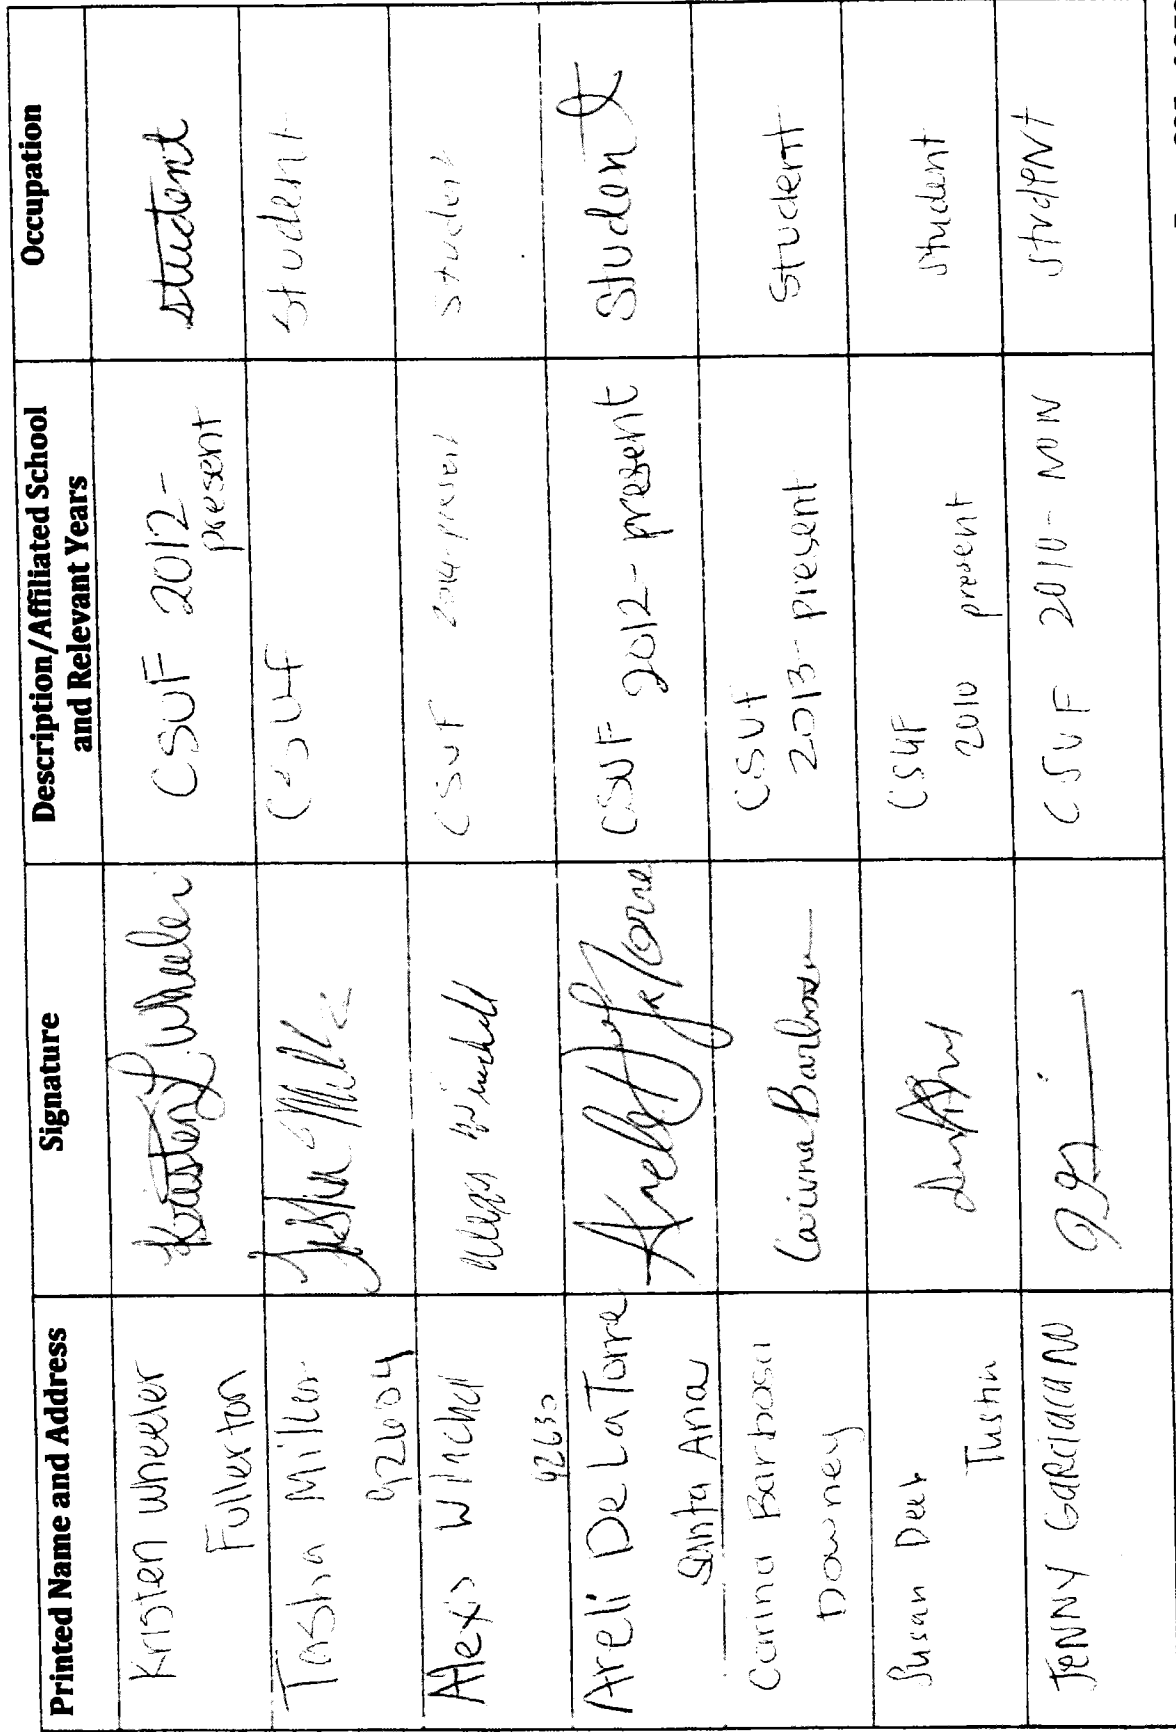 Printed Name and Address
Signature
Description/Affiliated School
and Relevant Years
Occupation
Kristen Wheeler
Fullerton
Kristen L Wheeler
CSUF 2012-
present
student
Tasha Miller
92604
CSUF
student
Alexis Winchel
92630
CSUF 2014-present
student
Areli De La Torre
Santa Ana
Areli De La Torre
CSUF 2012-present
student
Carina Barbosa
Downey
Carina Barbosa
CSUF
2013-present
student
Susan Deek
Tustin
CSUF
2010 present
student
JENNY
CSUF 2010-NOW
student